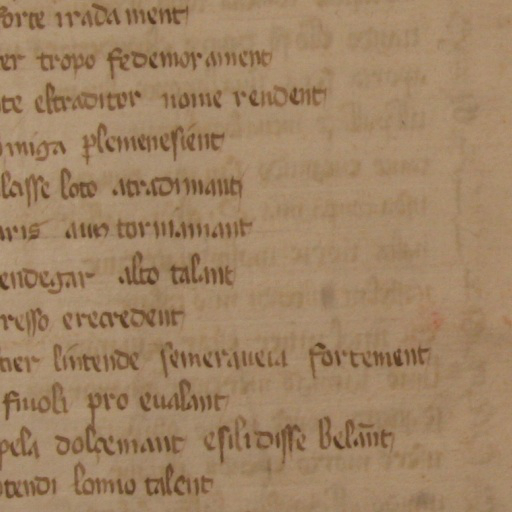 forte iradament
er tropo fedemorament
te estraditor nome rendent
miga plemenesient
lasse loto atradimant
aris aun tormamant
endegar alto talant
resso erecredent
tier lintende semeraueia fortement
fiuoli pro eualant
pela dolçemant esilidisse belant
tendi lomio talent